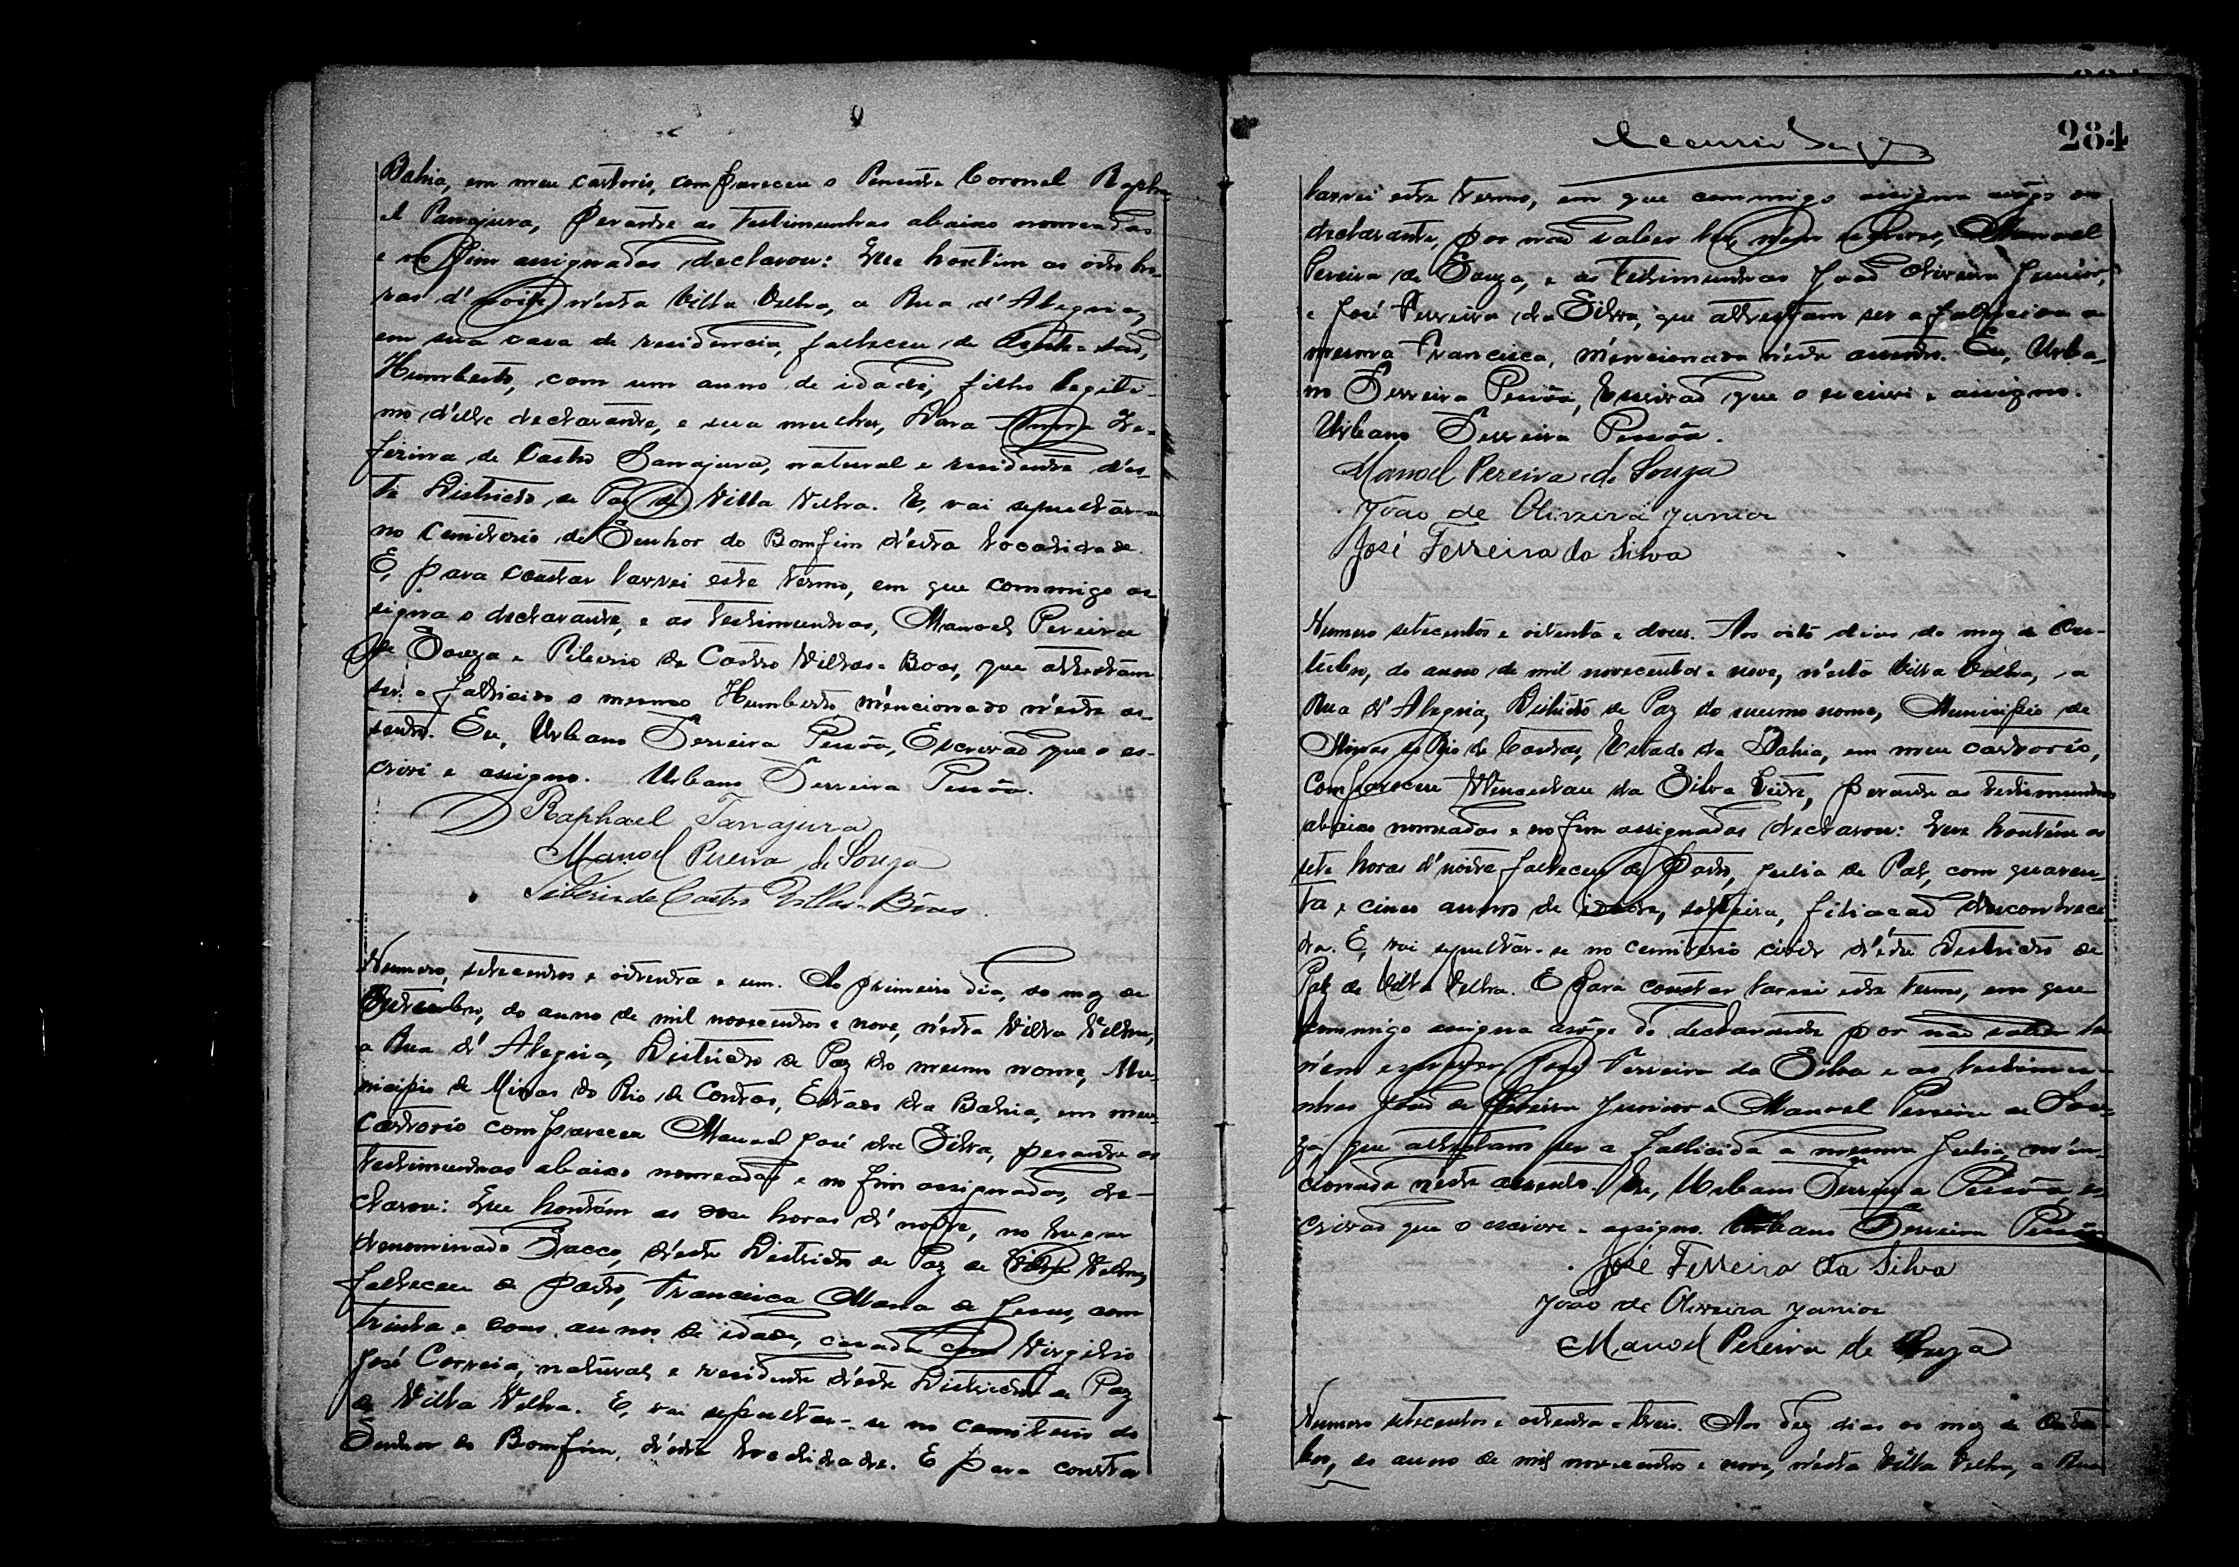 Bahia, em meu cartorio, compareceu o Tenente Coronel Rapha-
el Tanajura, perante as testimunhas abaixo nomeadas
e no fim assignadas, declarou: Que hontem as oito ho-
ras d' noite n'esta Villa Velha, a Rua d' Alegria,
em sua casa de residencia, falleceu de
Humberto, com um anno de idade, filho legiti-
mo d'elle declarante, e sua mulher, Dona Ze-
ferina de Castro Tanajura, natural e residente d'es-
te Districto de Paz de Villa Velha. E, vai sepultar-se
no Cemiterio do Senhor do Bomfim d'esta localidade.
E, para constar lavrei este termo, em que commigo as-
signa o declarante, e as testimunhas, Manoel Pereira
de Souza e Tiberio de Castro Villas-Boas, que attestam
ser o fallecido o mesmo Humberto mencionado n'este as-
sento. Eu, Urbano Ferreira Pessôa, Escrivão que o es-
crivi e assigno. Urbano Ferreira Pessôa.
Raphael Tanajura
Manoel Pereira de Souza
Tiberio de Castro Villas-Bôas.
Numero, setecentos e oitenta e um. Ao primeiro dia, do mez de
Outubro, do anno de mil novecentos e nove, n'esta Villa Velha,
a Rua d' Alegria, Districto de Paz do mesmo nome, Mu-
nicipio de Minas do Rio de Contas, Estado da Bahia, em meu
Cartorio compareceu Manoel José da Silva, perante as
testimunhas abaixo nomeadas e no fim assignadas, de-
clarou: Que hontem as horas d' noite, no lugar
denominado Sacco, d'este Districto de Paz de Villa Velha,
falleceu de parto, Francisca Maria de Jesus, com
trinta e dous annos de idade, casada com Virgilio
José Correia, natural e residente d'este Districto de Paz
de Villa Velha. E, vai sepultar-se no cemiterio do
Senhor do Bomfim, d'esta localidade. E para constar
284
lavrei este termo, em que commigo assigna arôgo do
declarante, por não saber ler, nem escrever, Manoel
Pereira de Souza, e as testimunhas João Oliveira Junior,
e José Ferreira da Silva, que attestam ser a fallecida a
mesma Francisca, mencionada n'este assento. Eu, Urba-
no Ferreira Pessôa, Escrivão que o escrivi e assigno.
Urbano Ferreira Pessôa.
Manoel Pereira de Souza
João de Oliveira Junior
José Ferreira da Silva
Numero setecentos e oitenta e dous. Aos oito dias do mez de Ou-
tubro, do anno de mil novecentos e nove, n'esta Villa Velha, a
Rua d' Alegria, Districto de Paz do mesmo nome, Municipio de
Minas do Rio de Contas, Estado da Bahia, em meu cartorio,
compareceu Wenceslau da Silva Leite, perante as testimunhas
abaixo nomeadas e no fim assignadas declarou: Que hontem as
sete horas d' noite falleceu de parto, Julia de Paz, com quaren-
ta e cinco annos de idade, solteira, filiação desconheci-
da. E, vai sepultar-se no cemiterio d'este Districto de
Paz de Villa Velha. E para constar lavrei este termo, em que
commigo assigna arôgo do declarante por não saber ler
nem escrever José Ferreira da Silva e as testimu-
nhas João de Oliveira Junior e Manoel Pereira de Sou-
za, que attestam ser a fallecida a mesma Julia, men-
cionada n'este assento. Eu, Urbano Ferreira Pessôa, es-
crivão que o escrivi e assigno. Urbano Ferreira Pessôa
José Ferreira da Silva
João de Oliveira Junior
Manoel Pereira de Souza
Numero setecentos e oitenta e tres. Aos dez dias do mez de Outu-
bro, do anno de mil novecentos e nove, n'esta Villa Velha, a Rua